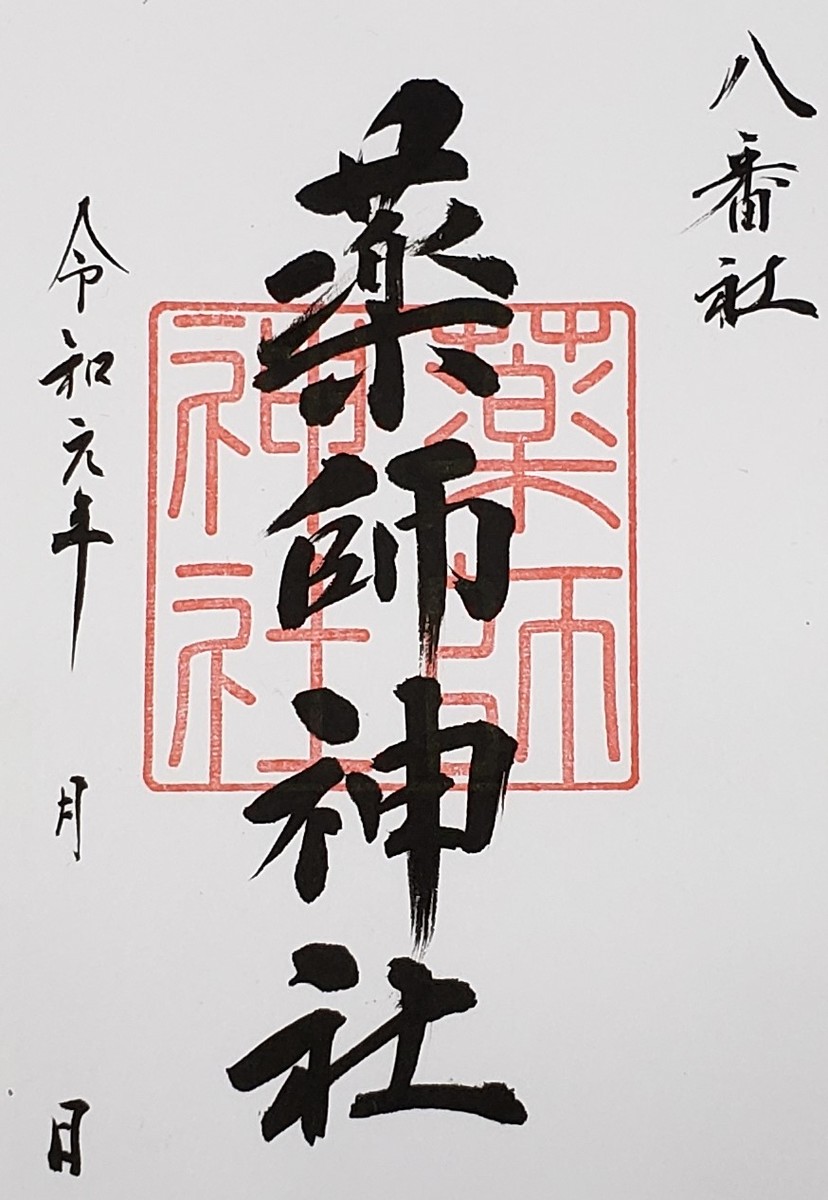 八番社
薬師神社
薬師
神社
令和元年 月 日